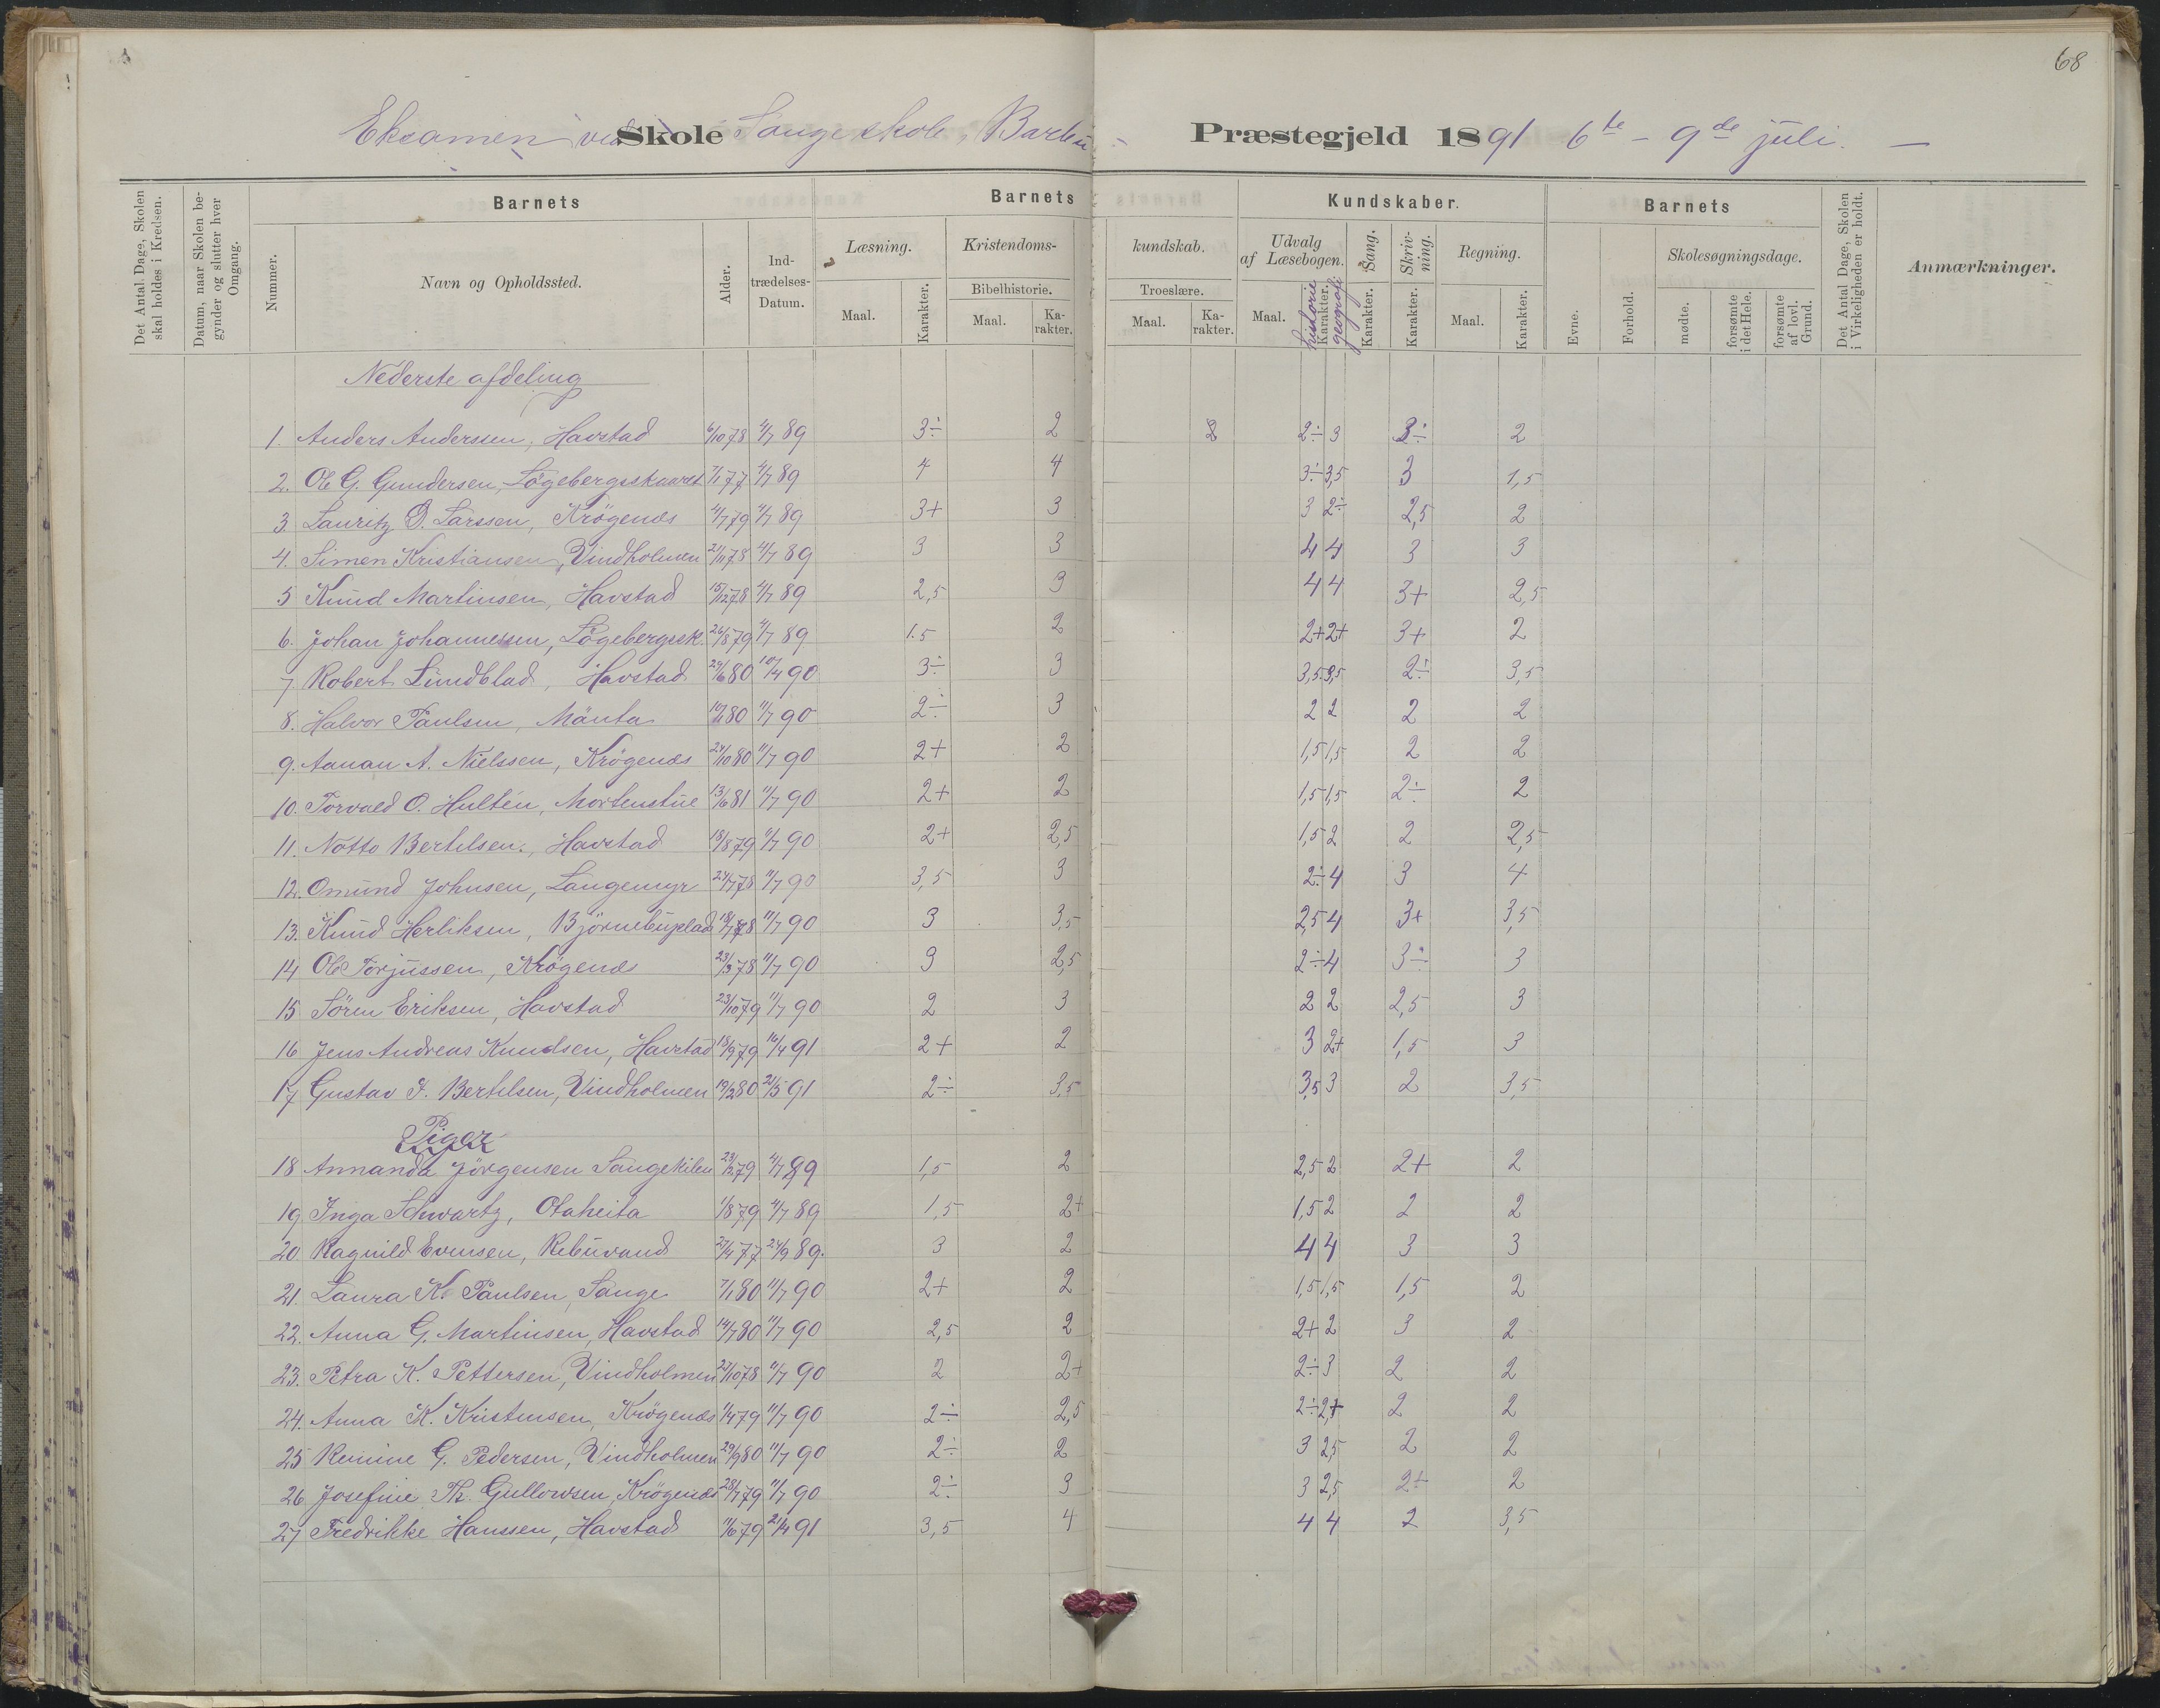 68
Eksamen ved Skole Sangeskole, Barbu Præstegjeld 1891 6te - 9de juli. -
Det Antal Dage, Skolen skal holdes i Kredsen.
Datum, naar Skolen begynder og slutter hver Omgang.
Barnets
Nummer.
Navn og Opholdssted.
Alder.
Indtrædelses-Datum.
Barnets Kundskaber.
Læsning.
Maal.
Karakter.
Kristendoms-kundskab.
Bibelhistorie.
Maal.
Karakter.
Troeslære.
Maal.
Karakter.
Udvalg af Læsebogen.
Maal.
historie
Karakter.
geografi
Sang.
Karakter.
Skrivning.
Karakter.
Regning.
Maal.
Karakter.
Barnets
Evne.
Forhold.
Skolesøgningsdage.
mødte.
forsømte i det Hele.
forsømte af lovl. Grund.
Det Antal Dage, Skolen i Virkeligheden er holdt.
Anmærkninger.
Nederste afdeling
1. Anders Anderssen, Havstad 6/10 78 4/7 89 3÷ 2 2÷ 3 3÷ 2
2. Ole G. Gundersen, Lögebergsskaaret 7/1 77 4/7 89 4 4 3÷ 3,5 3 1,5
3. Lauritz O. Larssen, Krögenæs 4/7 79 4/7 89 3+ 3 3 2÷ 2,5 2
4. Simen Kristiansen, Vindholmen 21/11 78 4/7 89 3 3 4 4 3 3
5 Knud Martinsen, Havstad 15/12 78 4/7 89 2,5 3 4 4 3+ 2,5
6. Johan Johannessen, Lögebergssk. 26/8 79 4/7 89 1.5 2 2+ 2+ 3+ 2
7 Robert Lundblad, Havstad 29/6 80 10/4 90 3÷ 3 3,5 3,5 2÷ 3,5
8. Halvor Paulsen, Mänta 80 11/7 90 2÷ 3 2 2 2 2
9. Aanan A. Nielssen, Krögenæs 24/10 80 11/7 90 2+ 2 1,5 1,5 2 2
10. Torvald O. Hultén, Mortenstue 13/6 81 11/7 90 2+ 2 1,5 1,5 2÷ 2
11. Notto Bertelsen, Havstad 18/8 79 11/7 90 2+ 2,5 1,5 2 2 2,5
12. Omund Johnsen, Langemyr 24/7 78 11/7 90 3,5 3 2÷ 4 3 4
13. Knud Herliksen, Björnebuplads 18/7 78 11/7 90 3 3,5 2,5 4 3+ 3,5
14 Ole Torjussen, Krögenæs 23/3 78 11/7 90 3 2,5 2÷ 4 3÷ 3
15 Sören Eriksen, Havstad 23/10 79 11/7 90 2 3 2 2 2,5 3
16 Jens Andreas Knudsen, Havstad 18/9 79 16/4 91 2+ 2 3 2+ 1,5 3
17 Gustav F. Bertelsen, Vindholmen 19/2 80 21/5 91 2÷ 3,5 3,5 3 2 3,5
Piger
18 Annanda Jörgensen Sangekilen 23/12 79 4/7 89 1,5 2 2,5 2 2+ 2
19 Inga Schwartz, Otaheita 1/8 79 4/7 89 1,5 2+ 1,5 2 2 2
20. Ragnild Evensen, Rebuvand 27/4 77 24/9 89. 3 2 4 4 3 3
21. Laura K. Paulsen, Sange 7/1 80 11/7 90 2+ 2 1,5 1,5 1,5 2
22. Anna G. Martinsen, Havstad 14/7 80 11/7 90 2,5 2 2+ 2 3 2
23. Petra K. Pettersen, Vindholmen 22/10 78 11/7 90 2 2+ 2÷ 3 2 2
24. Anna K. Kristensen, Krögenæs 1/4 79 11/7 90 2÷ 2,5 2÷ 2+ 2 2
25 G. Pedersen, Vindholmen 29/9 80 11/7 90 2÷ 2 3 2,5 2 2
26 Josefine Th. Gullowsen, Krögenæs 28/7 79 11/7 90 2÷ 3 3 2,5 2+ 2
27 Fredrikke Hanssen, Havstad 11/6 79 21/4 91 3,5 4 4 4 2 3,5